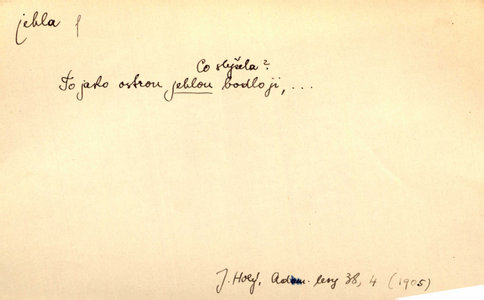 jehla f
Co slyšela?
To jako ostrou jehlou bodlo ji, ...
J. Holý, Adam. lesy 38, 4 (1905)